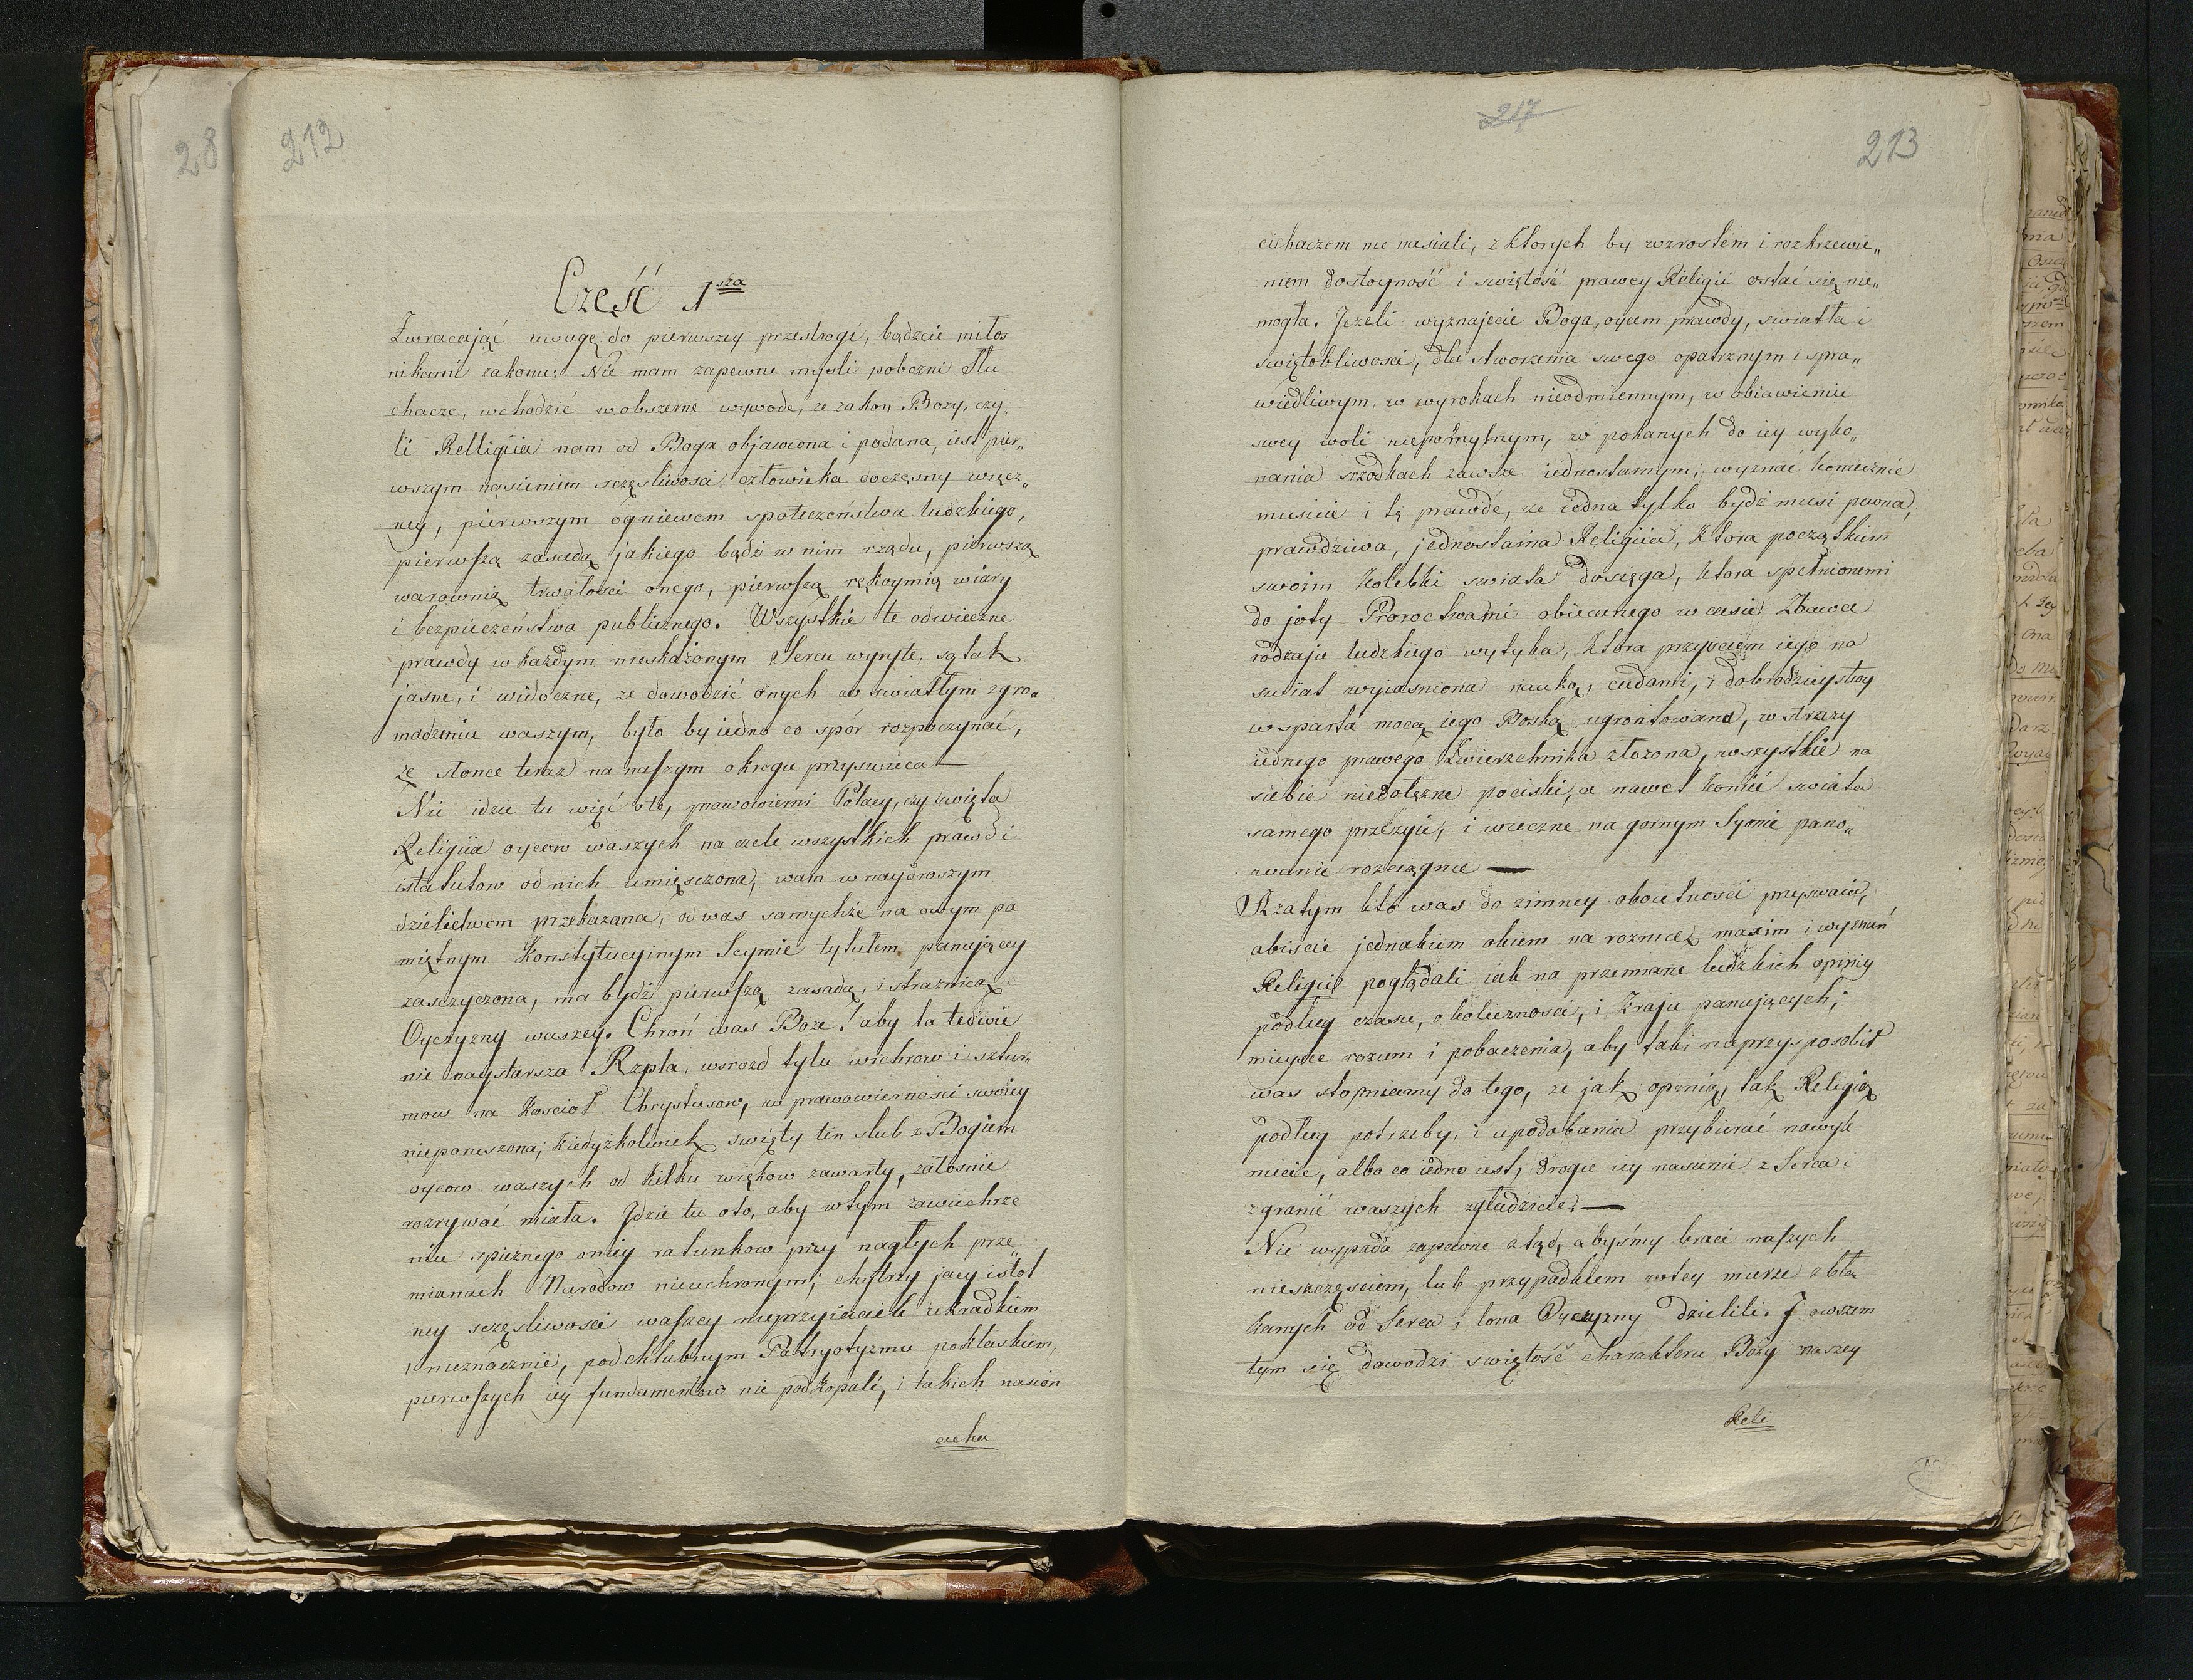 28
212
Cześć 1sza
Zwracając uwagę do pierwszey przestrogi, bądzcie miłos
nikami zakonu: Nie mam zapewne mysli pobozni Słu
chacze, wchodzić w obszerne wywode, ze zakon Bozy, czy„
li Relligiia nam od Boga objawiona i podana, iest pier„
wszym nasieniem sczęsliwosci człowieka doczęsny wiecz„
ney, pierwszym ogniewem społeczeństwa ludzkiego,
pierwszą zasadą jakiego bądź w nim rządu, pierwszą
warownią trwałosci onego, pierwszą rękoymią wiary
i bezpieczeństwa publicznego. Wszystkie te odwieczne
prawdy w każdym nieskażonym Sercu wyryte, są tak
jasne, i widoczne, ze dowodzić onych w swiatłym zgro„
madzeniu waszym, było by iedno co spór rozpoczynać,
ze słonce teraz na naszym okregu przyswieca —
Nie idzie tu więć oto, prawowierni Polacy, czy swięta
Religiia oycow waszych na czele wszystkich prawd i
istatutow od nich umiesczona, wam w naydroszym
dzielictwem przekazana, od was samychże na owym pa
miętnym Konstytucyinym Seymie tytułem panującey
zasczyczona, ma bydź pierwszą zasadą, i straznicą
Oyczyzny waszey. Chroń was Boze! aby ta ledwie
nie naystarsza Rzpta, wsrozd tylu wichrow i sztur„
mow na Koscioł Chrystusow, w prawowiernosci swoiey
nieporuszona; kiedyżkolwiek swięty ten slub z Bogiem
oycow waszych od kilku więkow zawarty, załosnie
rozrywać miała. Jdzie tu oto, aby w tym zawiechrze
niu spiesznego oniey ratunkow przy nagłych prze„
mianach Narodow nieuchronnym; chytrzy jacy istot
ney sczęsliwosci waszey nieprzyiaciele ukradkiem
i nieznacznie, pod chlubnym Patryotyzmu poklaskiem,
pierwszych iey fundamentow nie podkopali, i takich nasion
cicha
217
213
cichaczem nie nasiali, z ktorych by wzrostem i rozkrzewie„
niem dostoyność i swiętość prawey Religii ostać się nie„
mogła. Jeżeli wyznajecie Boga, oycem prawdy, swiatła i
swiętobliwosci, dla stworzenia swego opatrznym i spra„
wiedliwym, w wyrokach nieodmiennym, w obiawieniu
swey woli niepomylnym, w pokanych do iey wyko„
nania srzodkach zawsze iednostainym; wyznać koniecznie
musicie i tę prawdę, ze iedna tylko bydź musi pewna,
prawdziwa, jednostaina Religiia, ktora początkiem
swoim kolebki swiata dosięga, ktora spełnionemi
do joty Proroctwami obiecanego w czasie Zbawce
rodzaju ludzkiego wytyka, ktora przyiściem iego na
swiat wyiasniona nauką, cudami, i dobrodzieystwy
wsparta mocą iego Boską ugrontowana, w strzezy
iednego prawego Zwierzchnika złożona, wszystkie na
siebie niedołężne pociski, a nawet koniec swiata
samego przeżyie, i wieczne na gornym Syonie pano„
wanie rozciągnie —
A zatym kto was do zimney oboietności przyzwaia,
abiscie jednakiem okiem na roznicę maxim i wyznań
Religii poglądali iak na przemiane ludzkich opiniy
podług czasu, okolicznosci, i kraju panujących;
mieycie rozum i pobaczenia, aby taki nieprzysposobił
was stopniamy do tego, ze jak opinią, tak Religią
podług potrzeby, i upodobania przybierać nawyk
niecie, albo co iedno iest, drogie iey nasienie z Serca i
z granić waszych zgładzicie. —
Nie wypada zapewne ztąd, abyśmy braci naszych
niesczęsciem, lub przypadkiem w tey mierze zbła„
kanych od Serca i łona Oyczyzny dzielili. J owszem
tym się dowodzi swiętość charakteru Boży naszey
Reli